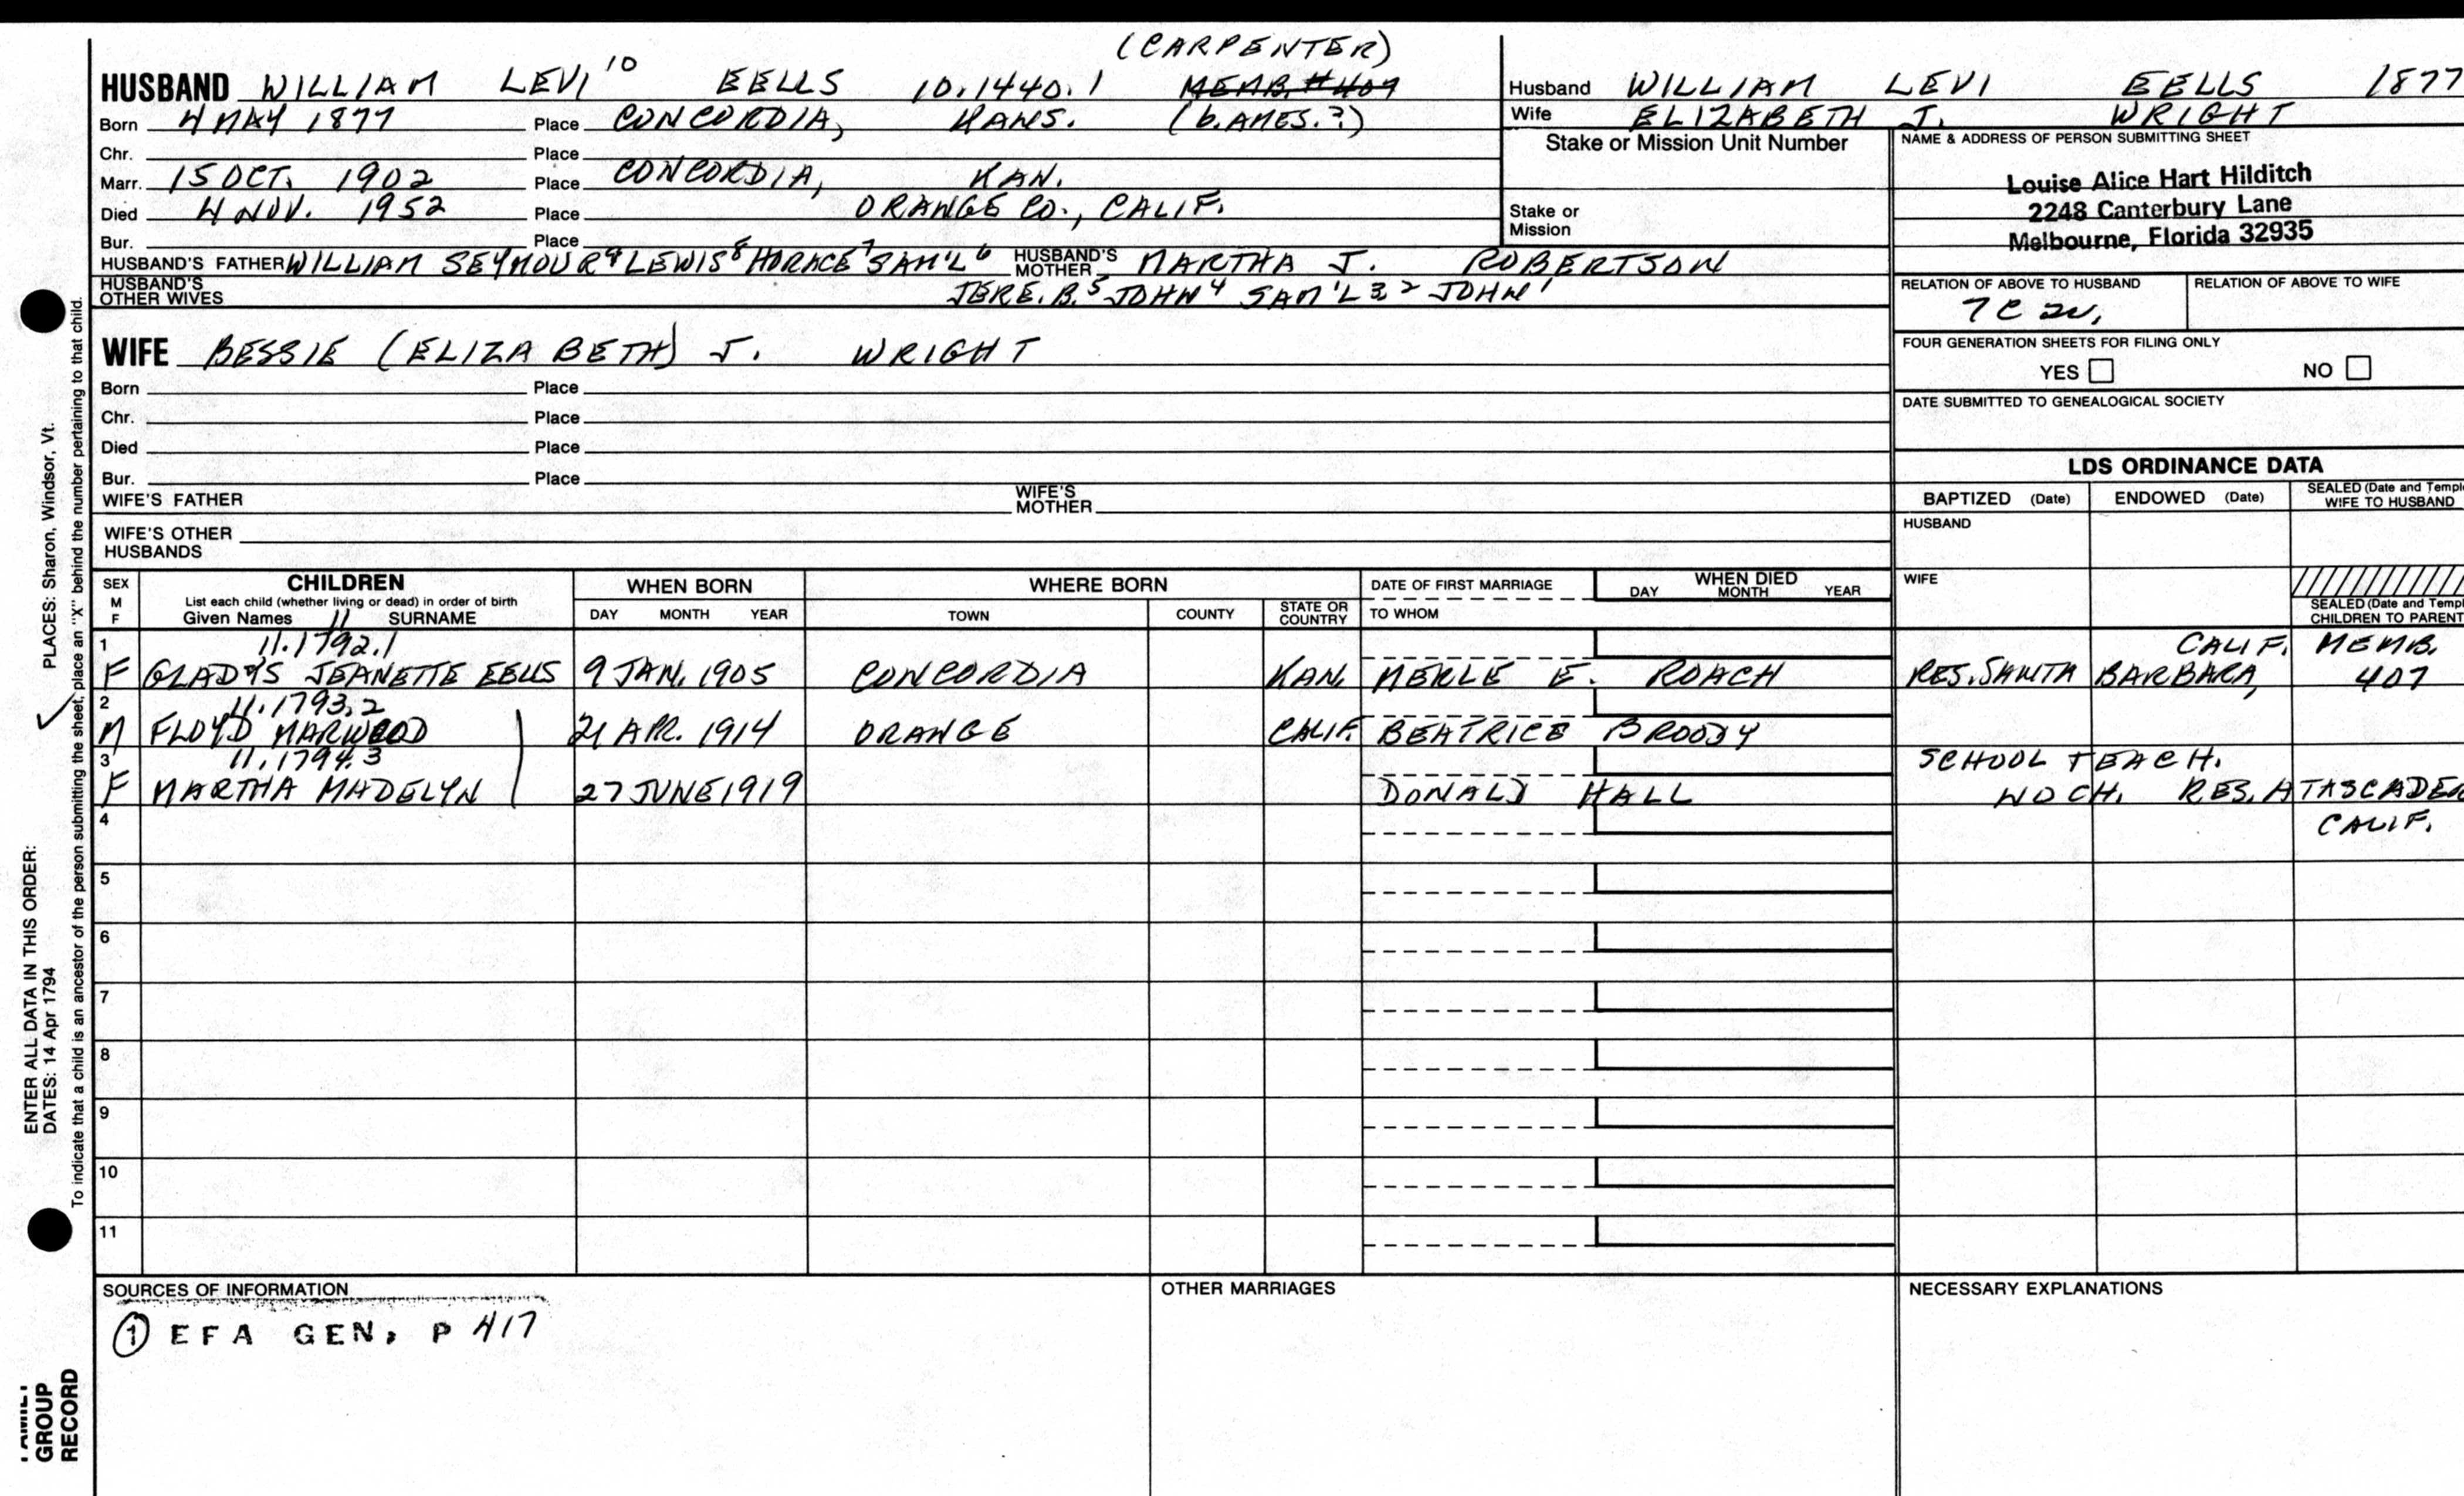 (CARPENTER)
HUSBAND WILLIAM LEVI 10 EELLS 10.1440.1 MEMB. #407
Born 4 MAY 1877 Place CONCORDIA, KANS. (b. AMES.?)
Chr. Place
Marr. 15 OCT. 1902 Place CONCORDIA, KAN.
Died 4 NOV. 1952 Place ORANGE CO., CALIF.
Bur. Place
HUSBAND'S FATHER WILLIAM SEYMOUR 9 LEWIS 8 HORACE 7 SAM'L 6 HUSBAND'S MOTHER MARTHA J. ROBERTSON
HUSBAND'S OTHER WIVES JERE. B. 5 JOHN 4 SAM'L 3 2 JOHN 1
WIFE BESSIE (ELIZABETH) J. WRIGHT
Born Place
Chr. Place
Died Place
Bur. Place
WIFE'S FATHER WIFE'S MOTHER
WIFE'S OTHER HUSBANDS
Husband WILLIAM LEVI EELLS 1877
Wife ELIZABETH J. WRIGHT
Stake or Mission Unit Number
Stake or
Mission
NAME & ADDRESS OF PERSON SUBMITTING SHEET
Louise Alice Hart Hilditch
2248 Canterbury Lane
Melbourne, Florida 32935
RELATION OF ABOVE TO HUSBAND RELATION OF ABOVE TO WIFE
7C
FOUR GENERATION SHEETS FOR FILING ONLY
YES NO
DATE SUBMITTED TO GENEALOGICAL SOCIETY
LDS ORDINANCE DATA
BAPTIZED (Date) ENDOWED (Date) SEALED (Date and Templ
WIFE TO HUSBAND
HUSBAND
WIFE
SEALED (Date and Templ
CHILDREN TO PARENT
SEX M F CHILDREN WHEN BORN WHERE BORN DATE OF FIRST MARRIAGE WHEN DIED
List each child (whether living or dead) in order of birth
Given Names 11 SURNAME DAY MONTH YEAR TOWN COUNTY STATE OR COUNTRY TO WHOM DAY MONTH YEAR
1 11.1792.1 CALIF. MEMB.
F GLADYS JEANETTE EELLS 9 JAN. 1905 CONCORDIA KAN. MERLE E. ROACH RES. SANTA BARBARA, 407
2 11.1793.2
M FLOYD MARWOOD 21 APR. 1914 ORANGE CALIF. BEATRICE BROODY
3 11.1794.3 SCHOOL TEACH.
F MARTHA MADELYN 27 JUNE 1919 DONALD HALL NO CH. RES. ATASCADER
4 CALIF.
5
6
7
8
9
10
11
SOURCES OF INFORMATION OTHER MARRIAGES NECESSARY EXPLANATIONS
1 EFA GEN, P 417
PLACES: Sharon, Windsor, Vt.
ENTER ALL DATA IN THIS ORDER:
DATES: 14 Apr 1794
To indicate that a child is an ancestor of the person submitting the sheet, place an "X" behind the number pertaining to that child.
FAMILY
GROUP
RECORD